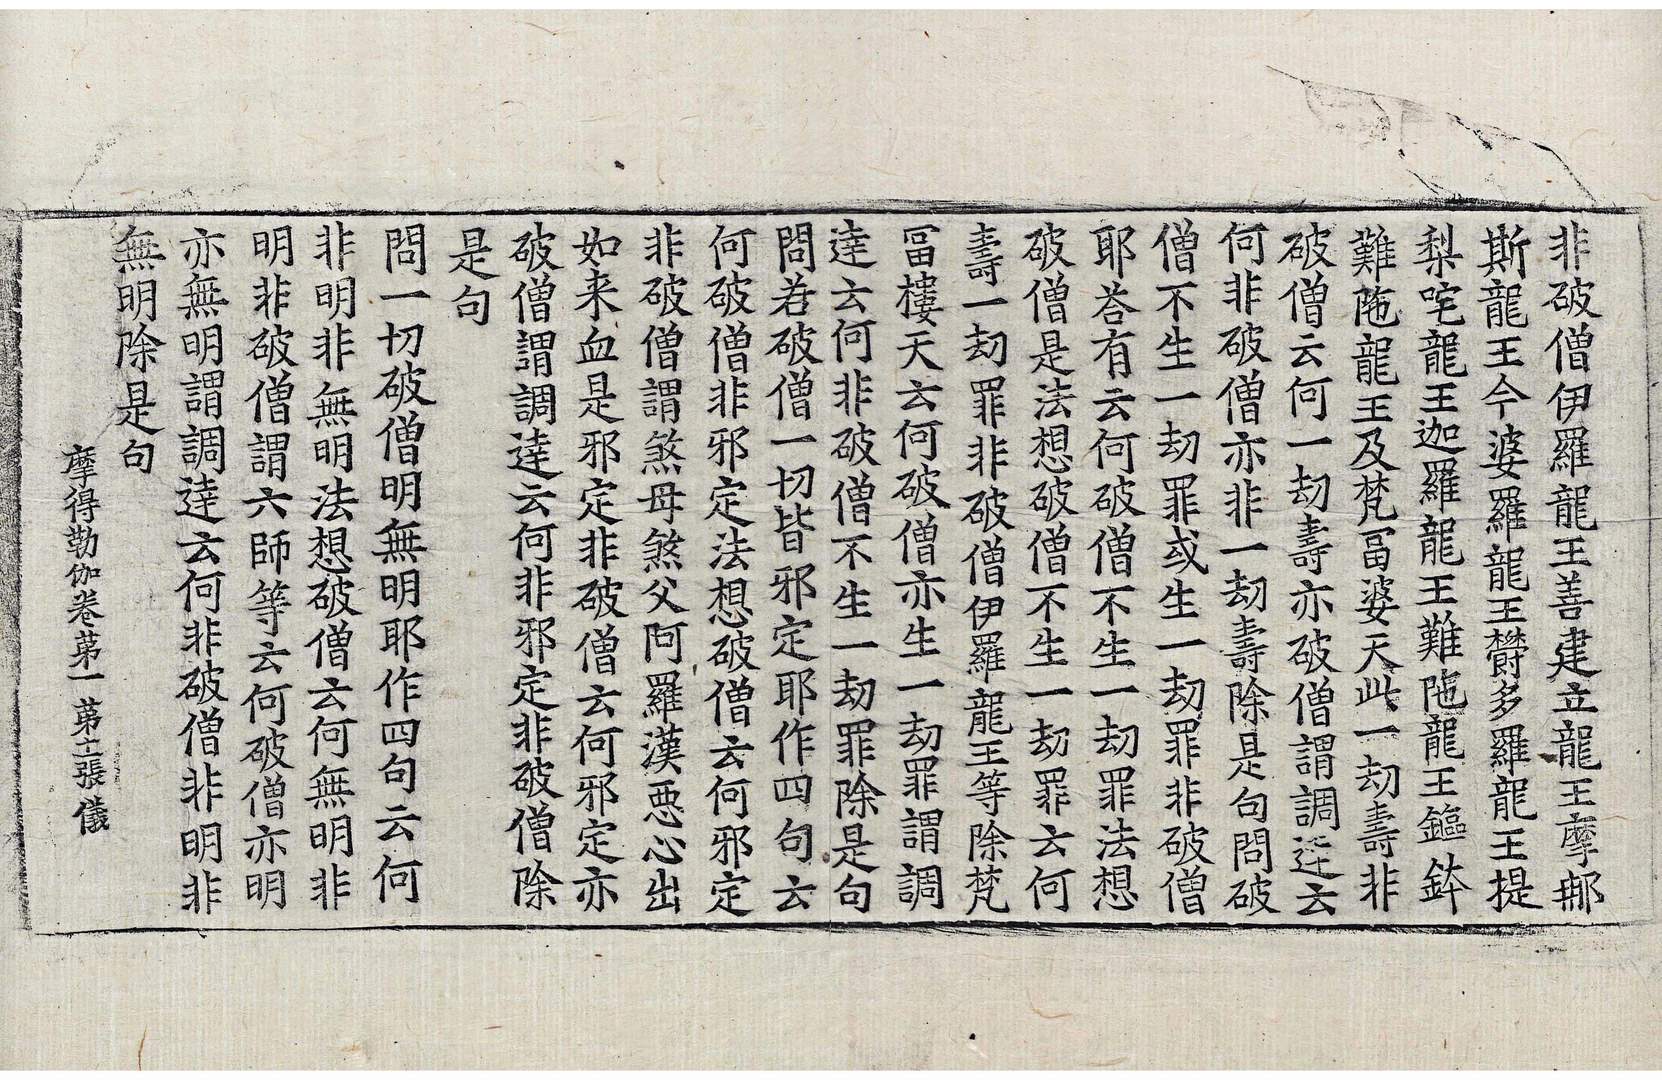 非破僧伊羅龍王善建立龍王摩那
斯龍王今婆羅龍王欝多羅龍王提
梨咤龍王迦羅龍王難陁龍王鏂鉢
難陁龍王及梵冨婆天此一劫壽非
破僧云何一劫壽亦破僧謂調逹云
何非破僧亦非一劫壽除是句問破
僧不生一劫罪或生一劫罪非破僧
耶荅有云何破僧不生一劫罪法想
破僧是法想破僧不生一劫罪云何
壽一劫罪非破僧伊羅龍王等除梵
冨樓天云何破僧亦生一劫罪謂調
逹云何非破僧不生一劫罪除是句
問若破僧一切皆邪定耶作四句云
何破僧非邪定法想破僧云何邪定
非破僧謂煞母煞父阿羅漢惡心出
如来血是邪定非破僧云何邪定亦
破僧謂調逹云何非邪定非破僧除
是句
問一切破僧明無明耶作四句云何
非明非無明法想破僧云何無明非
明非破僧謂六師等云何破僧亦明
亦無明謂調逹云何非破僧非明非
無明除是句
摩得勒伽卷苐一 苐張儀